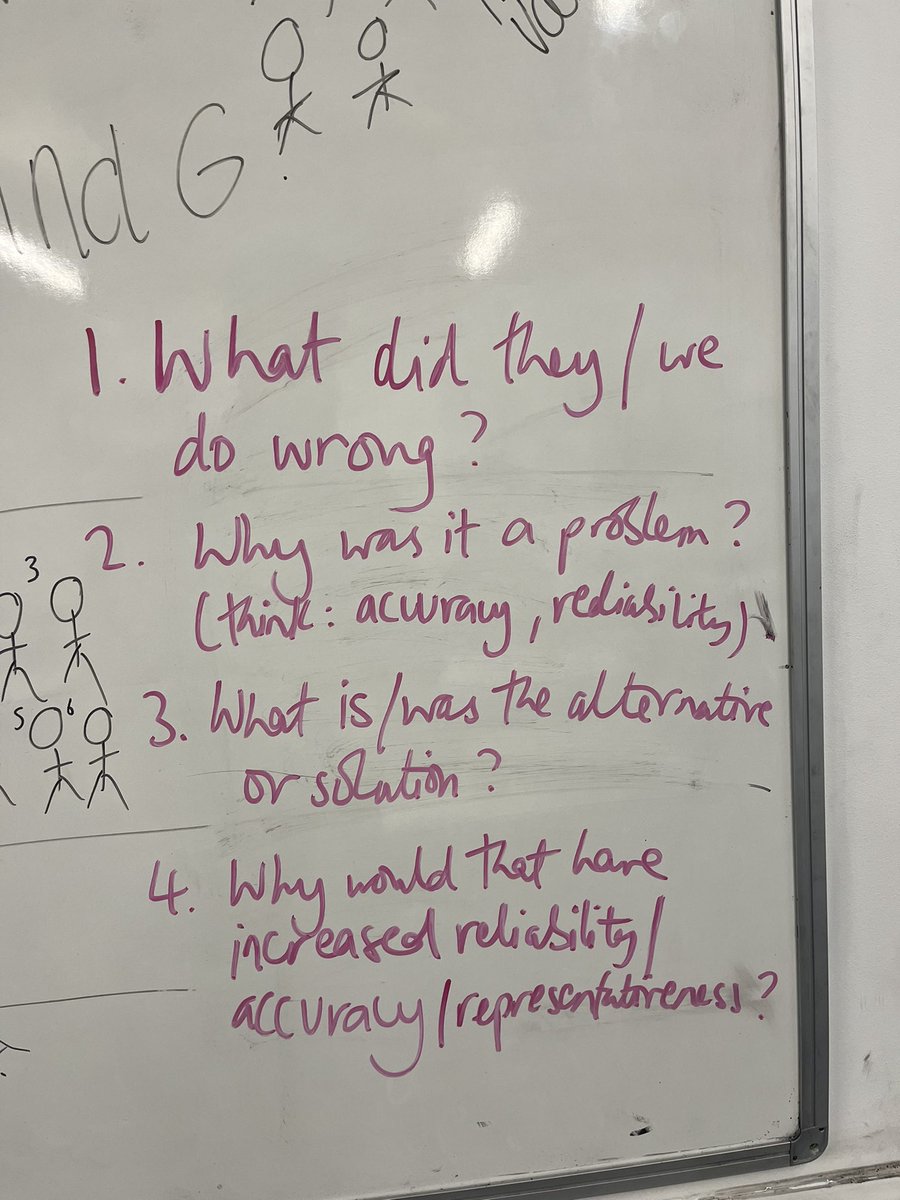 and G
1. What did they/we
do wrong?
2. Why was it a problem?
(think: accuracy, rediability)
3
5 6
3. What is/was the alternative
or solution?
4. Why would that have
increased reliability/
accuracy/representativeness?